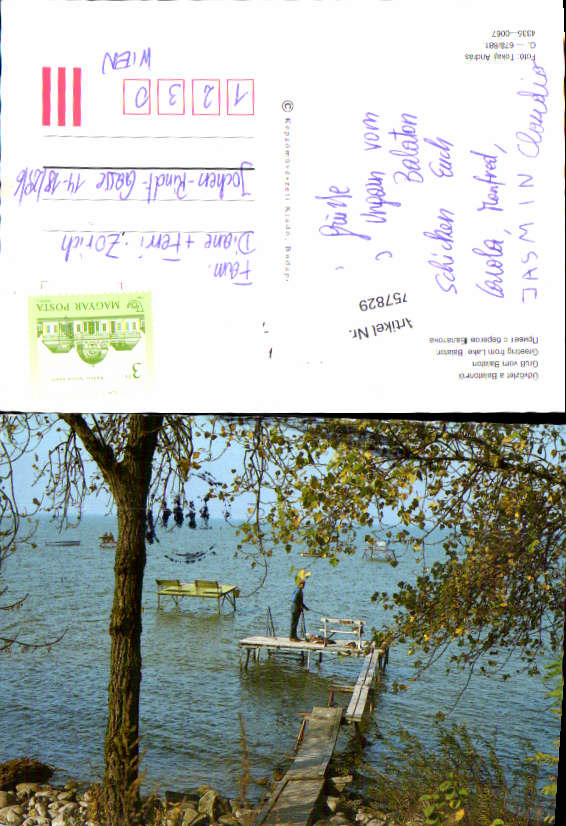 Üdvözlet a Balatonról
Gruß vom Balaton
Greeting from Lake Balaton
Привет с берегов Балатона
Artikel Nr.
757829
Grüße
Ungarn vom
Balaton
Schicken Euch
Carola, Manfred,
JASMIN Claudia
Foto: Tokay András
C. — 678/881
4335—0067
© Képzőművészeti Kiadó, Budap.
MAGYAR POSTA
3
Fam.
Diane + Ferri. Zorich
Jochen-Rindt-Gasse 14-18/
1 2 3 0
WIEN